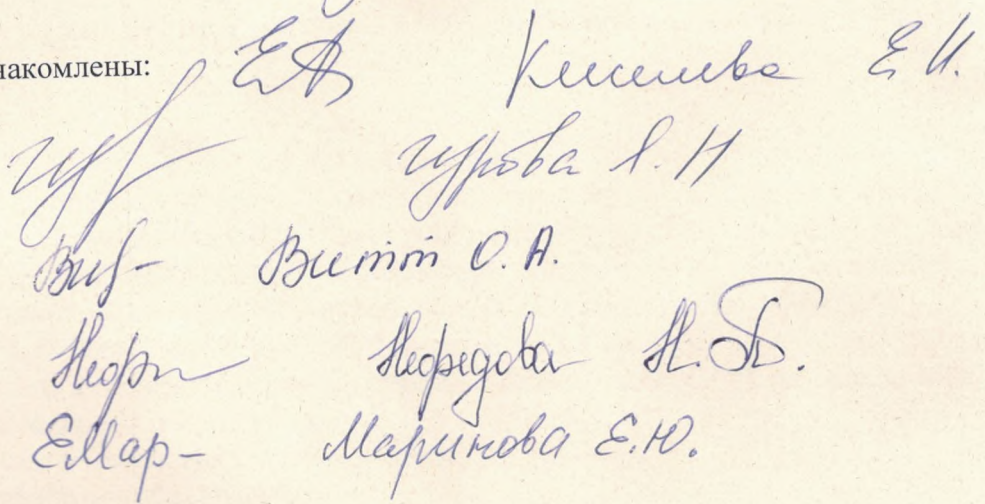 накомлены: Киселева Е И.
Гурова Л. Н
Витт О. А.
Нефедова Н. Б.
ЕМар- Маринова Е.Ю.